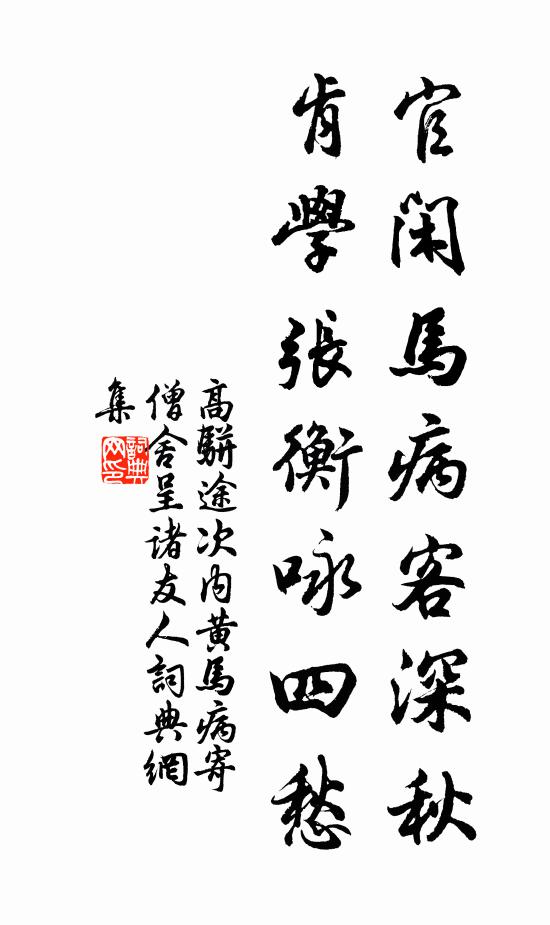 官閑馬病客深秋
肯學張衡咏四愁
高駢途次內黃馬病寄
僧舍呈諸友人詞典網
集